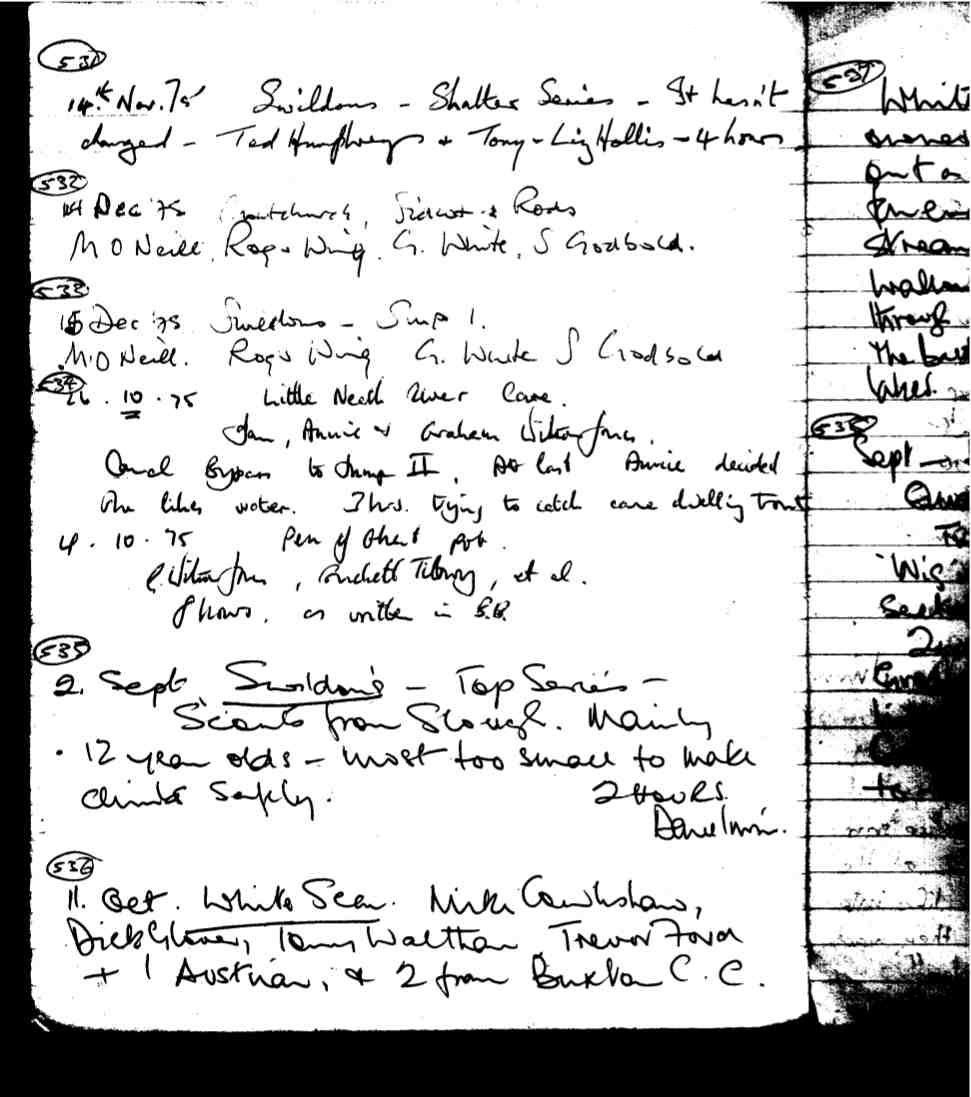 531
14th Nov. 75 Swildons - Shatter Series - It hasn't
changed - Ted Humphreys & Tony + Liz Hollis - 4 hours
532
Dec '75 Goatchurch, Sidcot & Rods
M O Neill, Roger Wing, G. White, S Godbold.
533
Dec '75 Swildons - Sump 1.
M.O Neill. Roger Wing G. White S Godbold
534
26 . 10 . 75 Little Neath River Cave.
Annie & Graham Wilton Jones.
Canal Bypass to Sump II. At last Annie decided
she likes water. 3 hrs. trying to catch cave dwelling trout
4 . 10 . 75 Pen y Ghent pot.
G. Wilton Jones, Buckett Tilbury, et al.
8 hours, as written in B.B.
535
2. Sept Swildon's - Top Series -
Scouts from Slough. Mainly
12 year olds - most too small to make
climbs safely. 2 HOURS.
Dave Irwin.
536
11. Oct. White Scar. Mick Cowlishaw,
Dick Glover, Tony Waltham Trevor Ford
+ 1 Austrian, & 2 from Buxton C.C.
537
Whit
owned
out a
Stream
through
the
lakes.
Sept
'Wig'
2
to